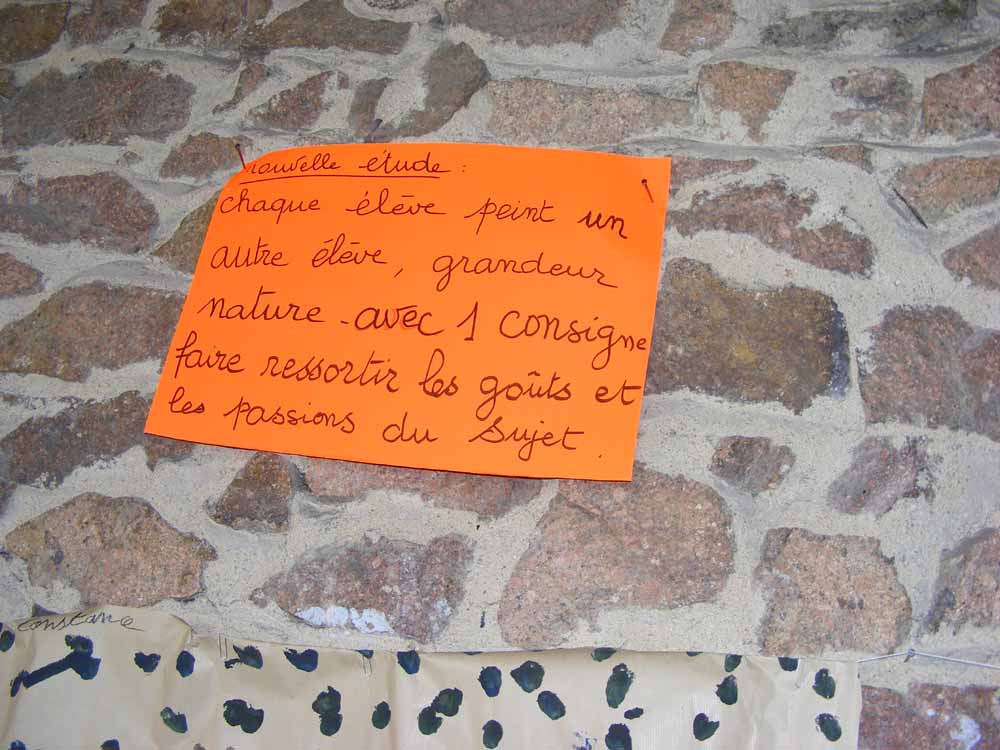 nouvelle étude :
chaque élève peint un
autre élève, grandeur
nature - avec 1 consigne
faire ressortir les goûts et
les passions du sujet.
Constance